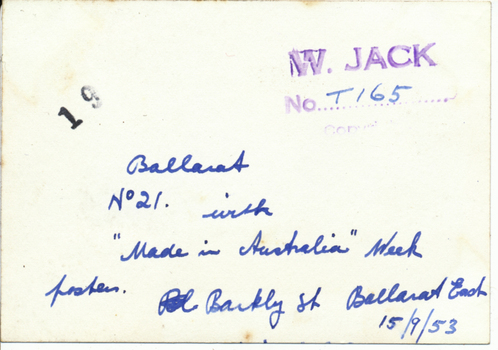 W. JACK
No. T165
19
Ballarat
No 21. with
"Made in Australia" Week
posters. Barkly St Ballarat East
15/9/53